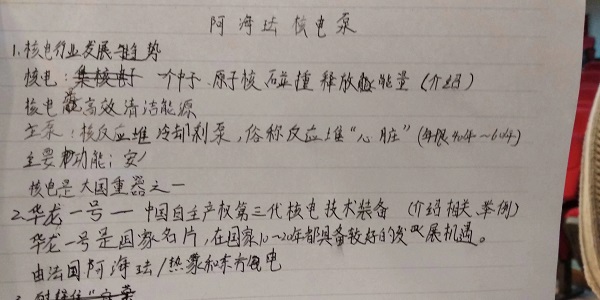 阿海法核电泵
1.核电行业发展与趋势
核电: 一个中子 原子核 碰撞 释放 能量 (介绍)
核电 高效清洁能源
主泵: 核反应堆冷却剂泵,俗称反应堆“心脏”(年限40年~60年)
主要 功能:
核电是大国重器之一
2.华龙一号一 中国自主产权第三代核电技术装备 (介绍相关.举例)
华龙一号是国家名片,在国家10~20年都具备较好的 发展机遇。
由法国阿海法/热蒙和东方 电